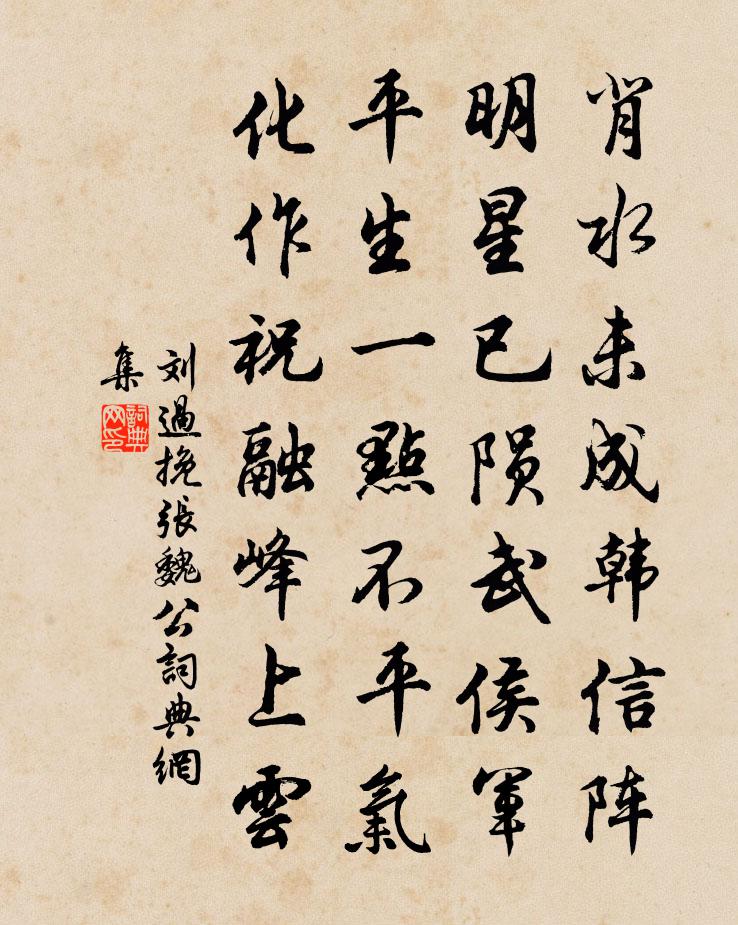 肖水未成韩信阵
明星已陨武侯军
平生一點不平氣
化作祝融峰上雲
刘過挽張魏公詞典網
集
詞典
网印